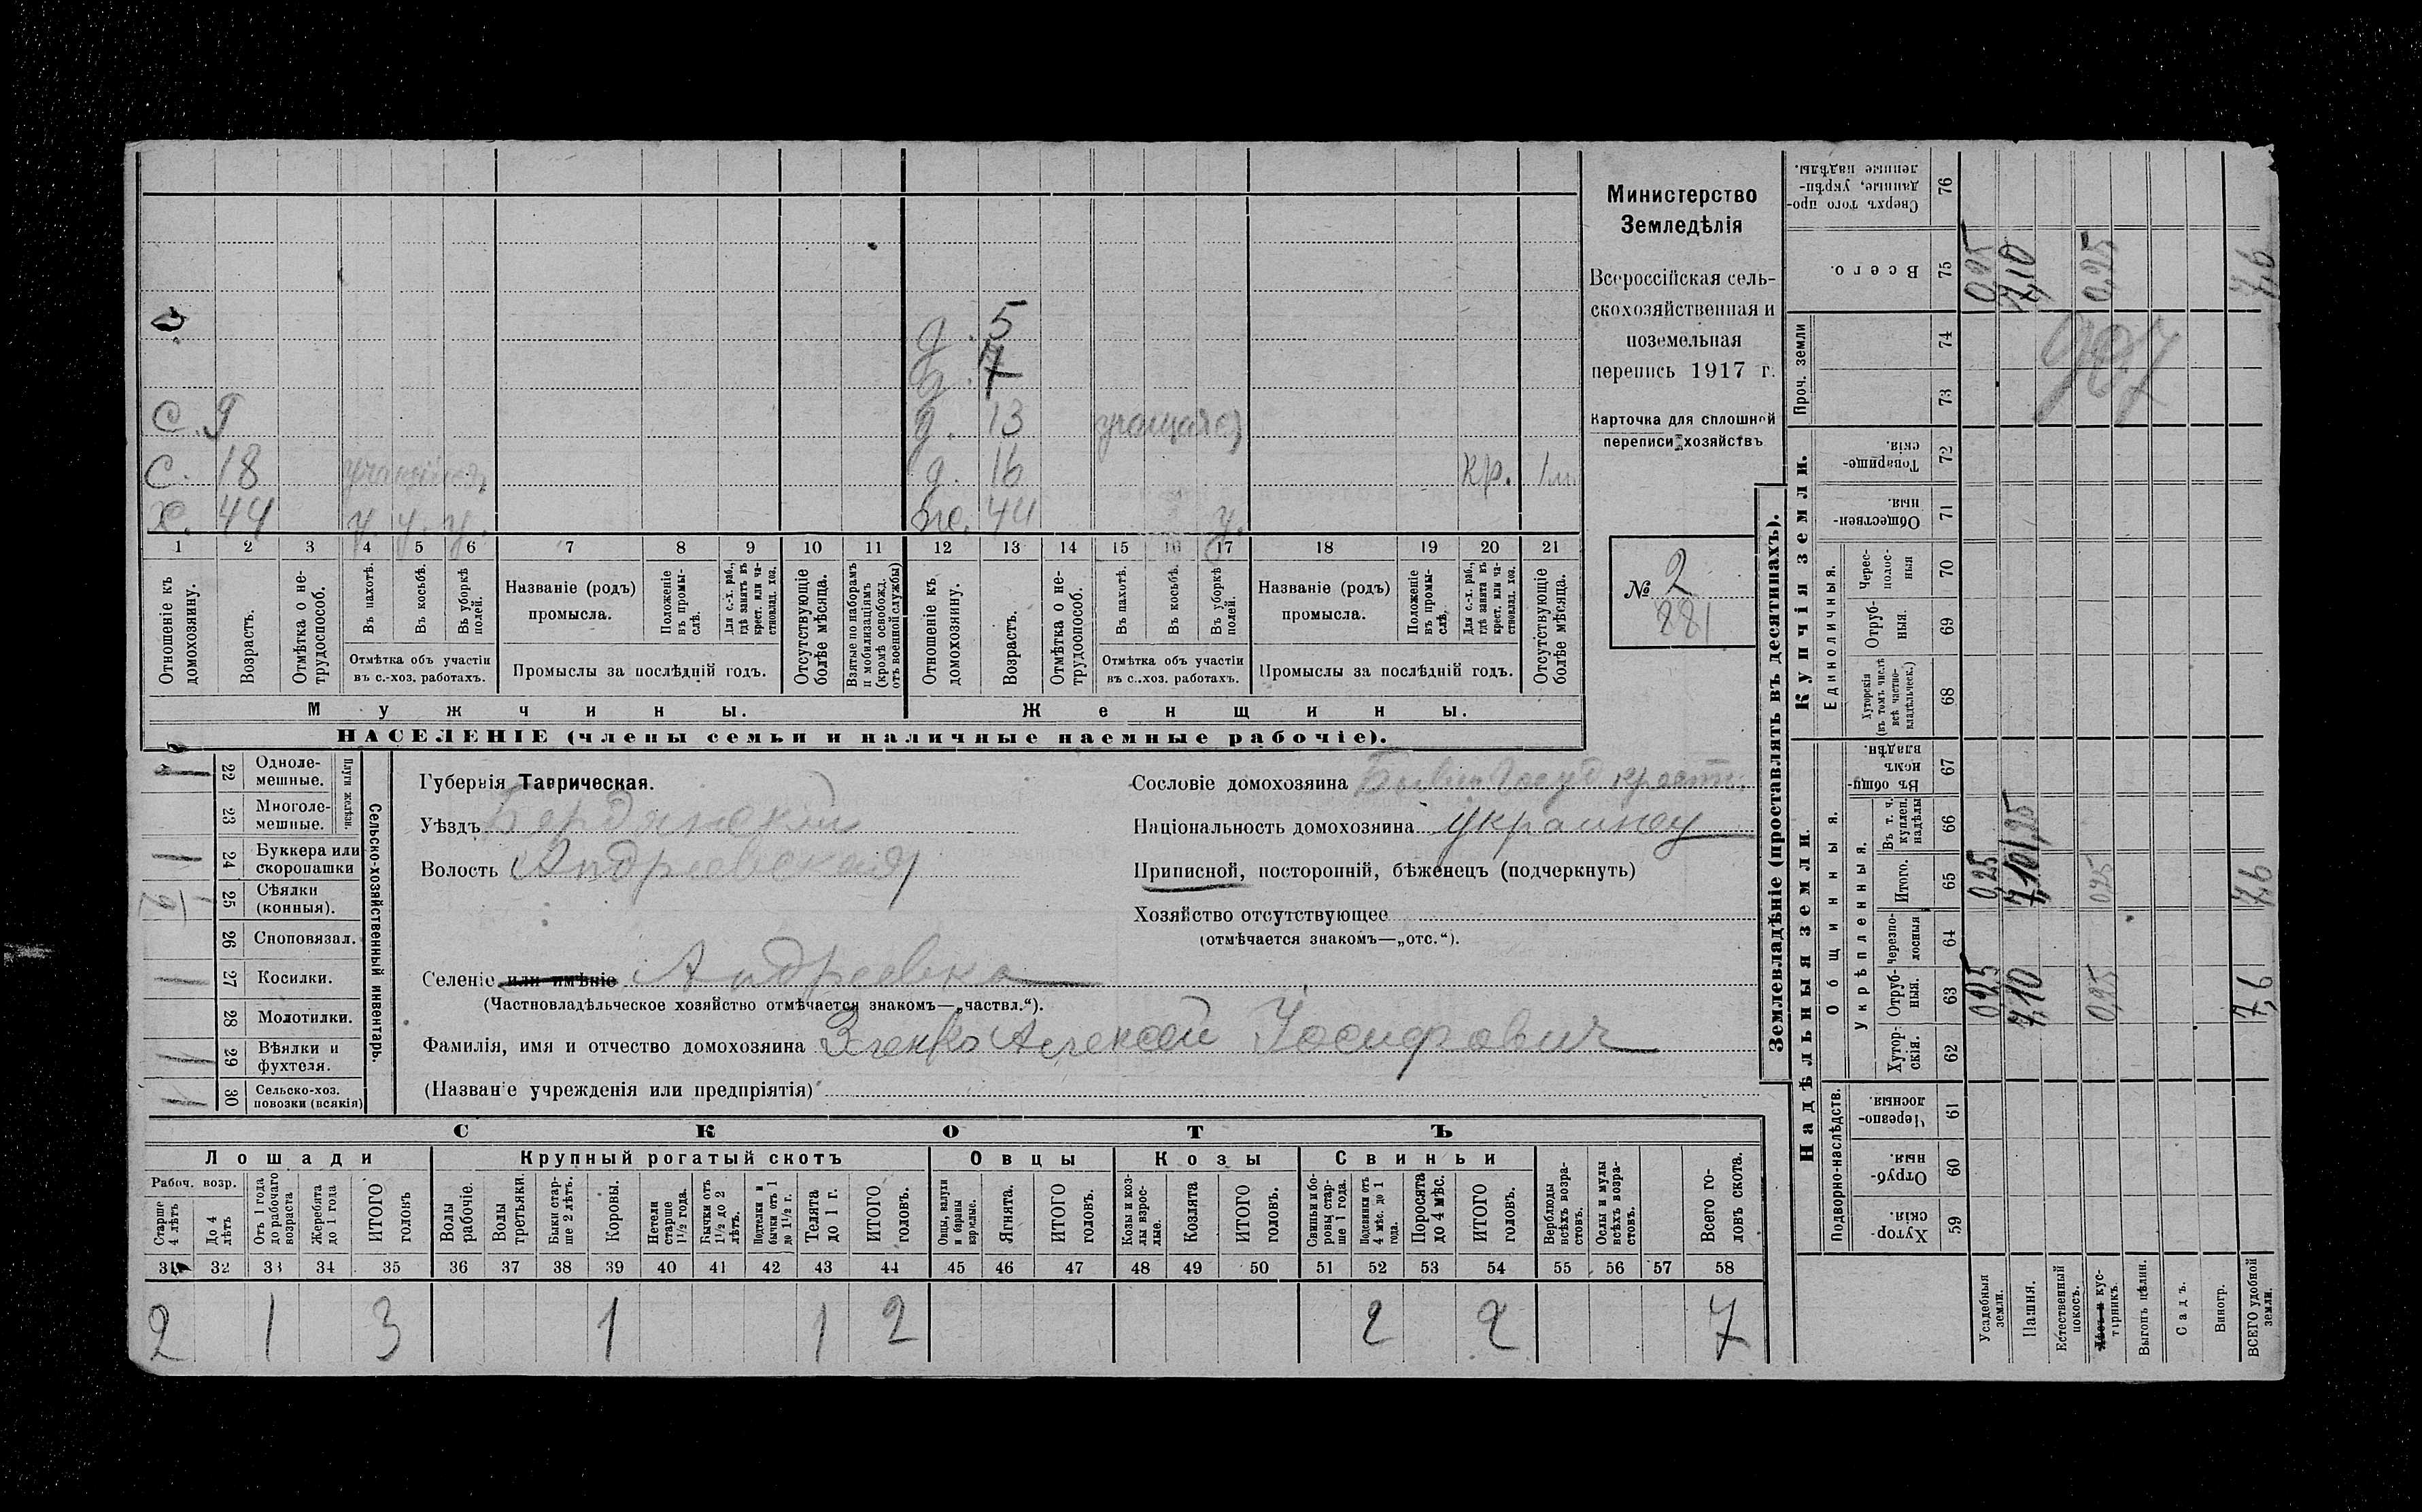 Министерство
Земледѣлія
Всероссійская сель-
скохозяйственная и
поземельная
перепись 1917 г.
Карточка для сплошной
переписи хозяйствъ
№ 2
881
д. 5
д. 7
С. 9
д. 13 учащаяся
С. 18 учащійся
д. 16 кр. 1 м.
х. 44 у у. у.
же. 44 у.
1 2 3 4 5 6 7 8 9 10 11 12 13 14 15 16 17 18 19 20 21
Отношеніе къ домохозяину.
Возрастъ.
Отмѣтка о не-трудоспособ.
Въ пахотѣ.
Въ косьбѣ.
Въ уборкѣ полей.
Отмѣтка объ участіи въ с.-хоз. работахъ.
Названіе (родъ) промысла.
Положеніе въ промы-слѣ.
Для с.-х. раб., гдѣ занятъ въ крест. или ча-стновлад. хоз.
Промыслы за послѣдній годъ.
Отсутствующіе болѣе мѣсяца.
Взятые по наборамъ и мобилизаціямъ (кромѣ освобожд. отъ военной службы)
Отношеніе къ домохозяину.
Возрастъ.
Отмѣтка о не-трудоспособ.
Въ пахотѣ.
Въ косьбѣ.
Въ уборкѣ полей.
Отмѣтка объ участіи въ с..хоз. работахъ.
Названіе (родъ) промысла.
Положеніе въ промы-слѣ.
Для с.-х. раб., гдѣ занятъ въ крест. или ча-стновлад. хоз.
Промыслы за послѣдній годъ.
Отсутствующіе болѣе мѣсяца.
Мужчины. Женщины.
НАСЕЛЕНІЕ (члены семьи и наличные наемные рабочіе).
Сельско-хозяйственный инвентарь.
Плуги желѣзн.
22 Однолемешные. 1
23 Многолемешные.
24 Буккера или скоропашки 1
25 Сѣялки (конныя).
26 Сноповязал.
27 Косилки. 1
28 Молотилки.
29 Вѣялки и фухтеля. 1
30 Сельско-хоз. повозки (всякія)
Губернія Таврическая.
Уѣздъ Бердянскій
Волость Андреевская
Селеніе или имѣніе Андреевка
(Частновладѣльческое хозяйство отмѣчается знакомъ—„частвл.“).
Фамилія, имя и отчество домохозяина Зленко Алексей Іосифович
(Названіе учрежденія или предпріятія)
Сословіе домохозяина Бывш Госуд крестн.
Національность домохозяина украинец
Приписной, посторонній, бѣженецъ (подчеркнуть)
Хозяйство отсутствующее
(отмѣчается знакомъ—„отс.“).
СКОТЪ
Лошади Крупный рогатый скотъ Овцы Козы Свиньи
Рабоч. возр.
Старше 4 лѣтъ
До 4 лѣтъ
Отъ 1 года до рабочаго возраста
Жеребята до 1 года
ИТОГО головъ
Волы рабочіе.
Волы третьяки.
Быки стар-ше 2 лѣтъ.
Коровы.
Нетели старше 1½ года.
Бычки отъ 1½ до 2 лѣтъ.
Подтелки и бычки отъ 1 до 1½ г.
Телята до 1 г.
ИТОГО головъ.
Овцы, валухи и бараны взрослые.
Ягнята.
ИТОГО головъ.
Козы и коз-лы взрос-лые.
Козлята
ИТОГО головъ.
Свиньи и бо-ровы стар-ше 1 года.
Подсвинки отъ 4 мѣс. до 1 года.
Поросята до 4 мѣс.
ИТОГО головъ.
Верблюды всѣхъ возра-стовъ.
Ослы и мулы всѣхъ возра-стовъ.
Всего го-ловъ скота.
31 32 33 34 35 36 37 38 39 40 41 42 43 44 45 46 47 48 49 50 51 52 53 54 55 56 57 58
2 1 3 1 1 2 2 2 7
Землевладѣніе (проставлять въ десятинахъ).
Надѣльныя земли.
Купчія земли.
Проч. земли
Подворно-наслѣдств.
Общинныя.
Укрѣпленныя.
Единоличныя.
59 Хутор-скія.
60 Отруб-ныя.
61 Черезпо-лосныя.
62 Хутор-скія.
63 Отруб-ныя. 0,25 7,10 0,25 7,6
64 Черезпо-лосныя
65 Итого. 0,25 7,10 0,25 7,6
66 Въ т. ч. куплен. надѣлы 1,25
67 Въ общин-номъ владѣн.
68 Хуторскія (въ томъ числѣ всѣ частно-владѣльческ.)
69 Отруб-ныя.
70 Черес-полос-ныя
71 Обществен-ныя.
72 Товарище-скія.
73
74
75 Всего. 0,25 7,10 0,25 7,6
76 Сверхъ того про-данные, укрѣп-ленные надѣлы.
Усадебныя земли.
Пашня.
Естественный покосъ.
Лѣсъ и кус-тарникъ.
Выгонъ цѣлин.
Садъ.
Виногр.
ВСЕГО удобной земли.